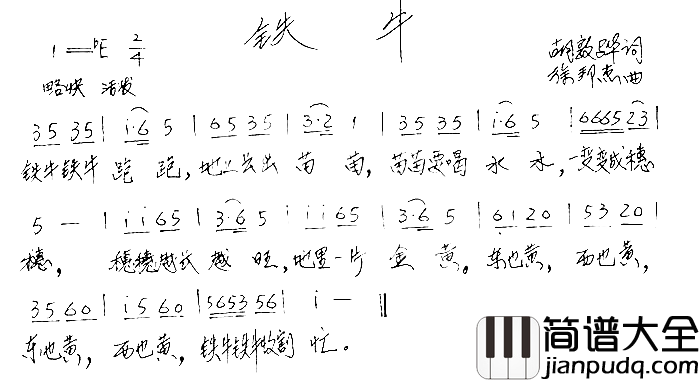 铁牛
1=bE 2/4
胡敦骅词
略快 活发
徐邦杰曲
35 35 | i·6 5 | 65 35 | 3·2 1 | 35 35 | i·6 5 | 6665 23 |
铁牛铁牛跑跑,地上长出苗苗,苗苗要喝水水,一变变成穗
5 — | i i 65 | 3·6 5 | i i i 65 | 3·6 5 | 6 i 20 | 53 20 |
穗, 穗穗越长越旺,地里一片金黄。东也黄,西也黄,
35 60 | i5 60 | 5653 56 | i — ‖
东也黄,西也黄,铁牛铁牛收割忙。
简谱大全
www.jianpudq.com